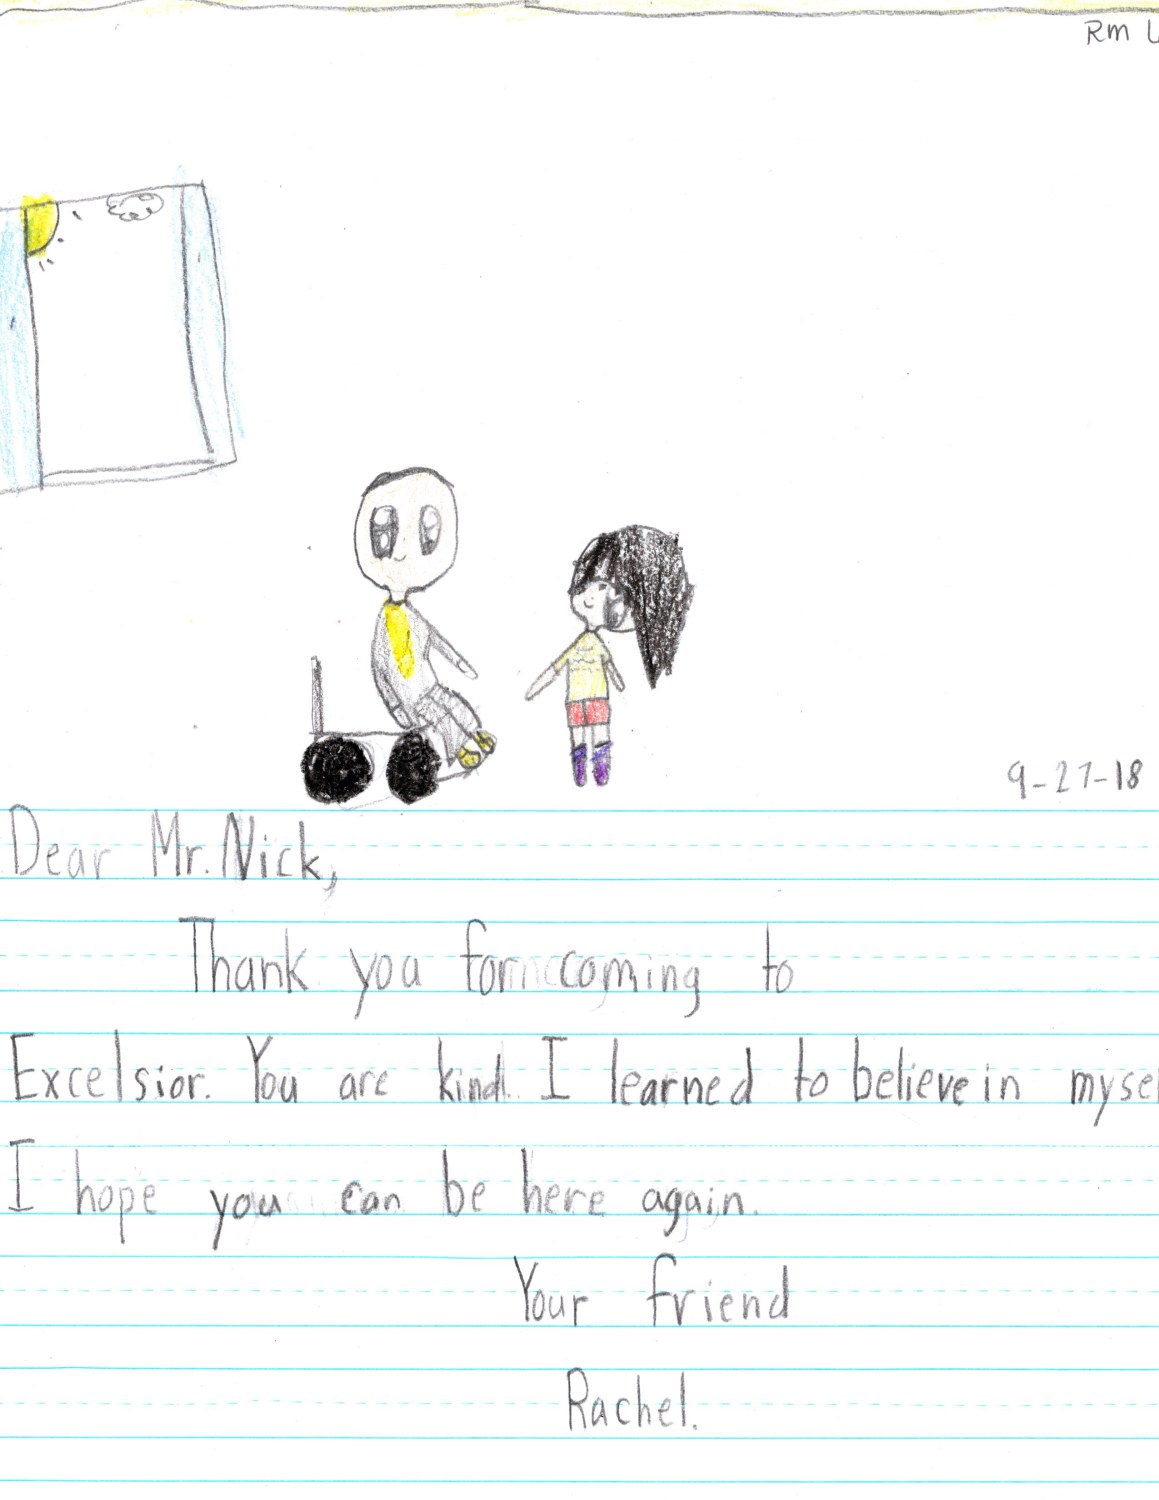 Rm
9-27-18
Dear Mr. Nick,
Thank you for coming to
Excelsior. You are kind. I learned to believe in mysel
I hope you can be here again.
Your friend
Rachel.